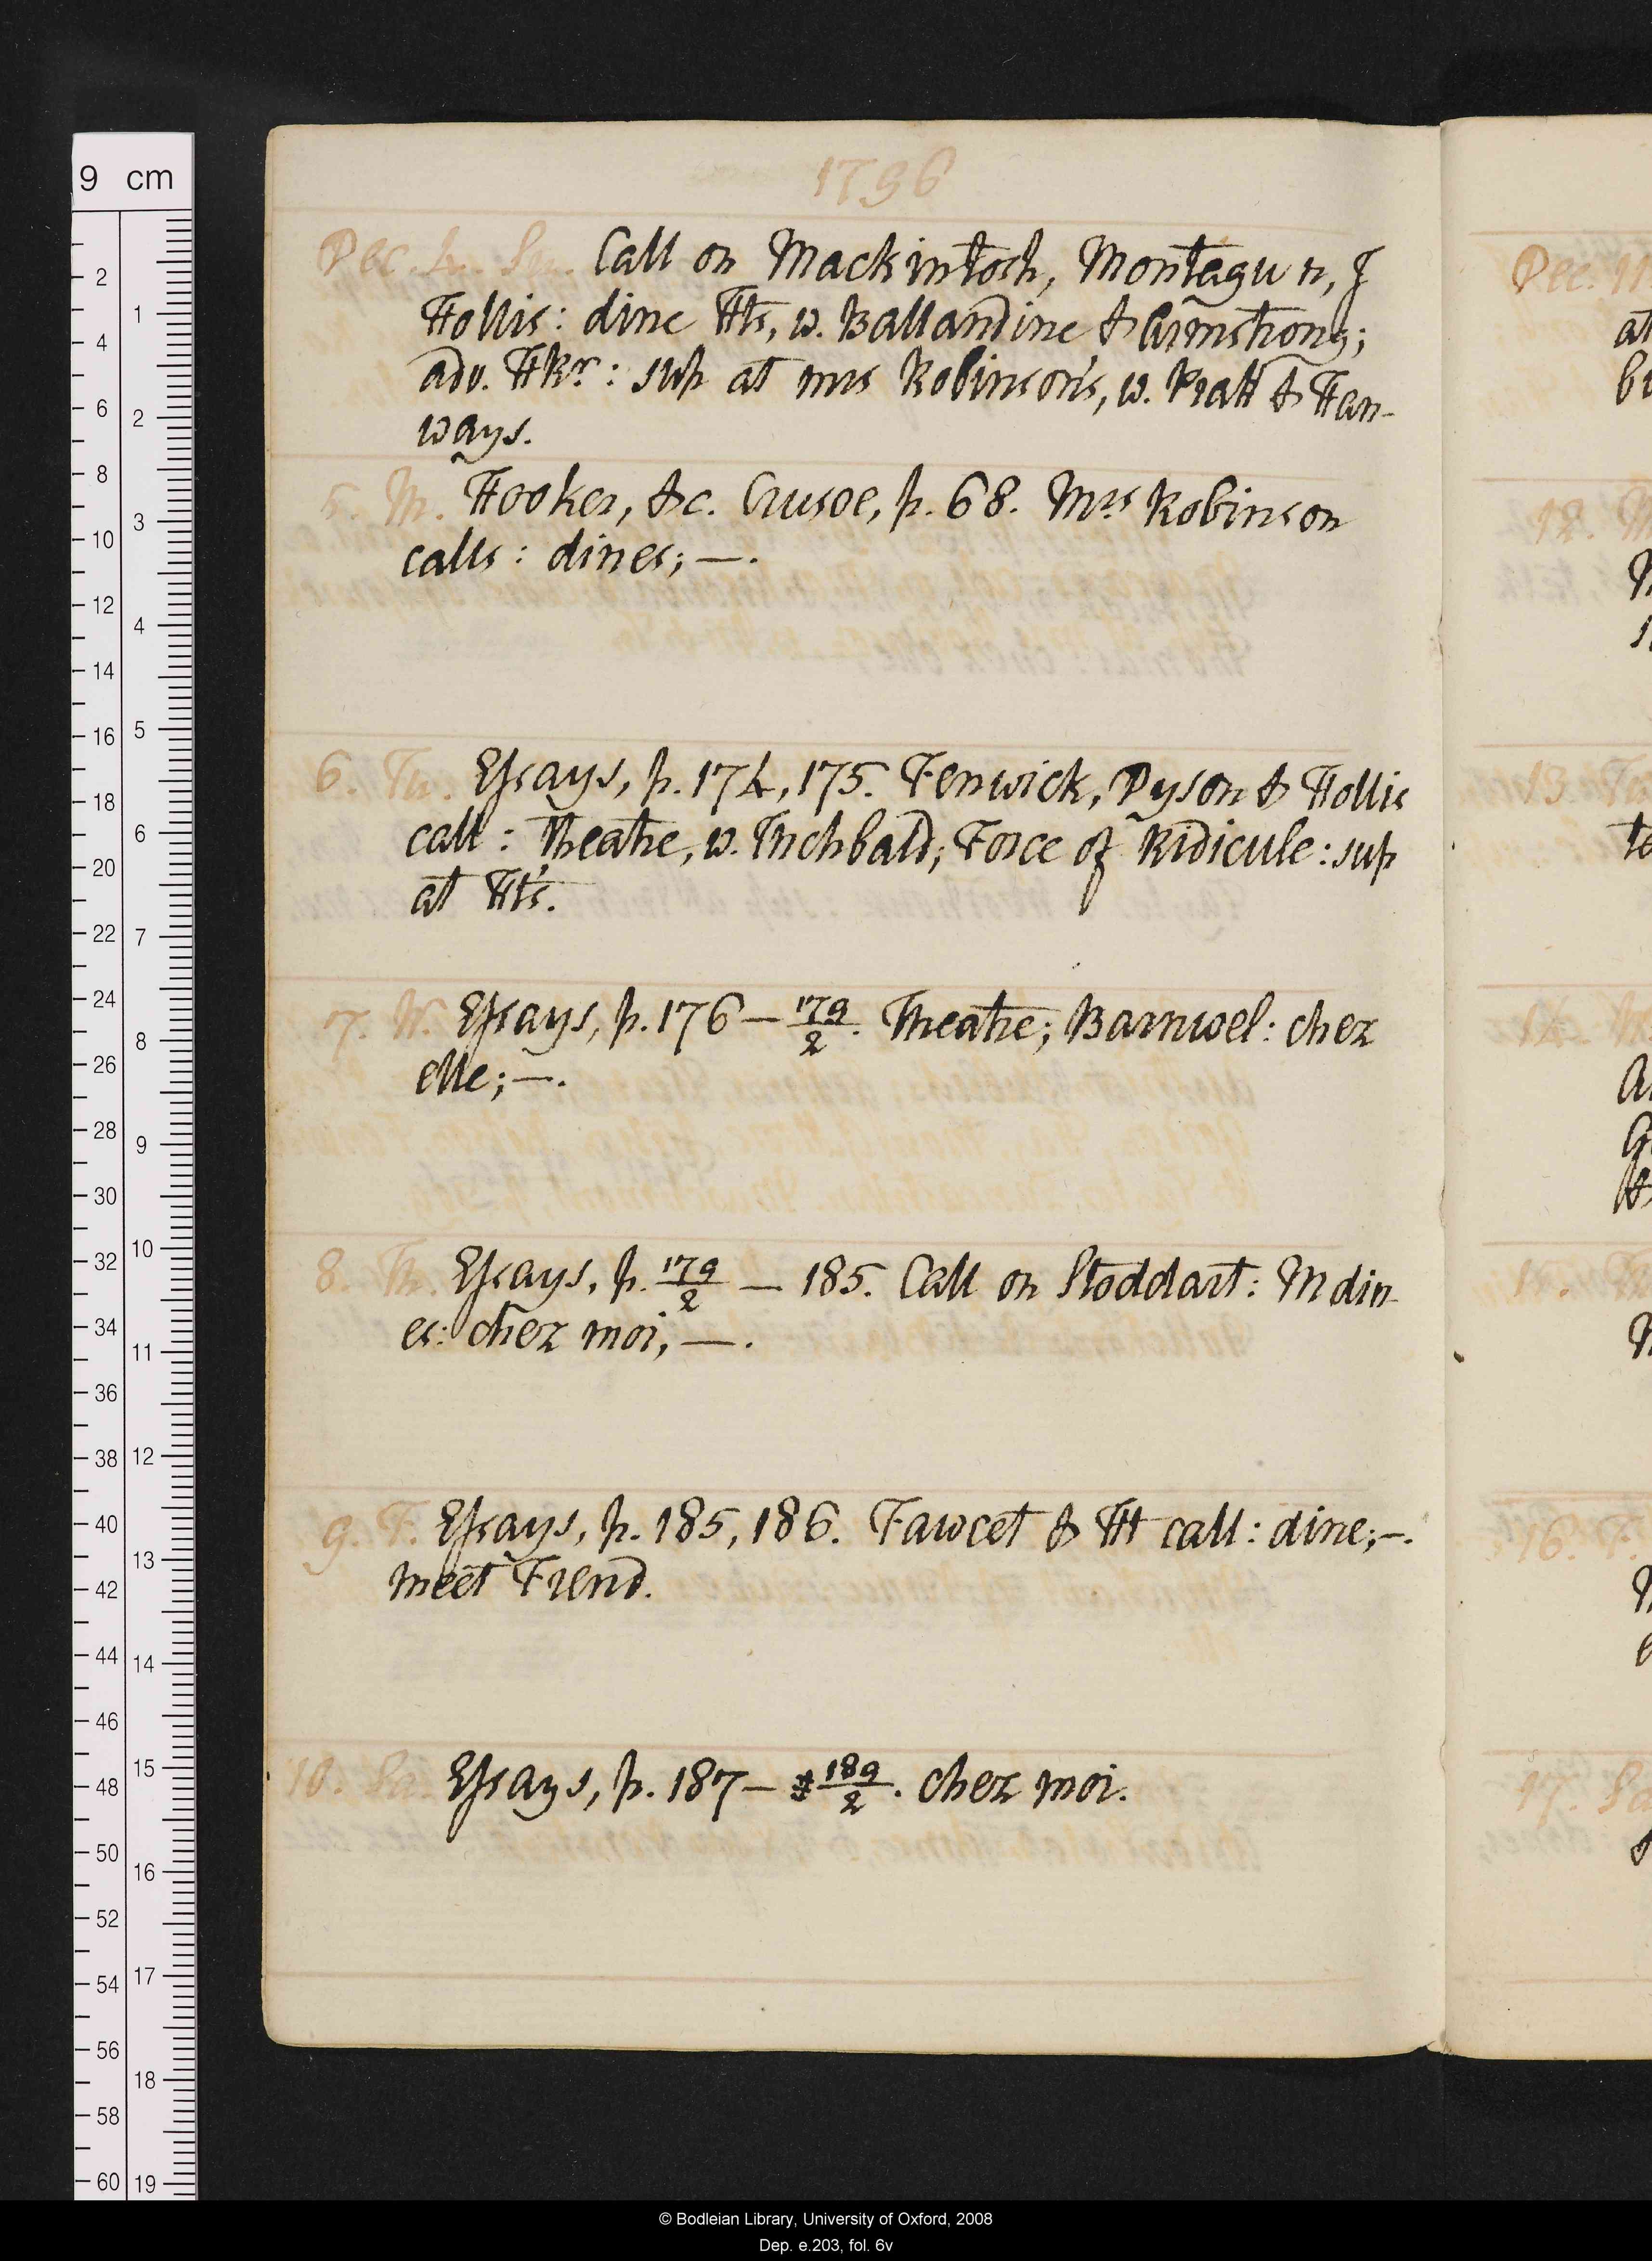 9 cm
1796
Dec. 4. Su. Call on Mackintosh, Montagu n, J
Hollis: dine Hts, w. Ballandine & Armstrong;
adv. Hkr: sup at mrs Robinson's, w. Pratt & Han-
ways.
5. M. Hooker, &c. Crusoe, p. 68. Mrs Robinson
calls: dines; —.
6. Tu. Essays, p. 174, 175. Fenwick, Dyson & Hollis
call: Theatre, w. Inchbald; Force of Ridicule: sup
at Ht's.
7. W. Essays, p. 176 — 179/2. Theatre; Barnwel: chez
elle; —.
8. Th. Essays, p. 179/2 — 185. Call on Stoddart: M din-
es: chez moi, —.
9. F. Essays, p. 185, 186. Fawcet & Ht call: dine; —.
meet Frend.
10. Sa. Essays, p. 187 — 189/2. chez moi.
Dec. 11
12. M
13. Tu
14.
15.
16. F.
17. Sa
© Bodleian Library, University of Oxford, 2008
Dep. e.203, fol. 6v